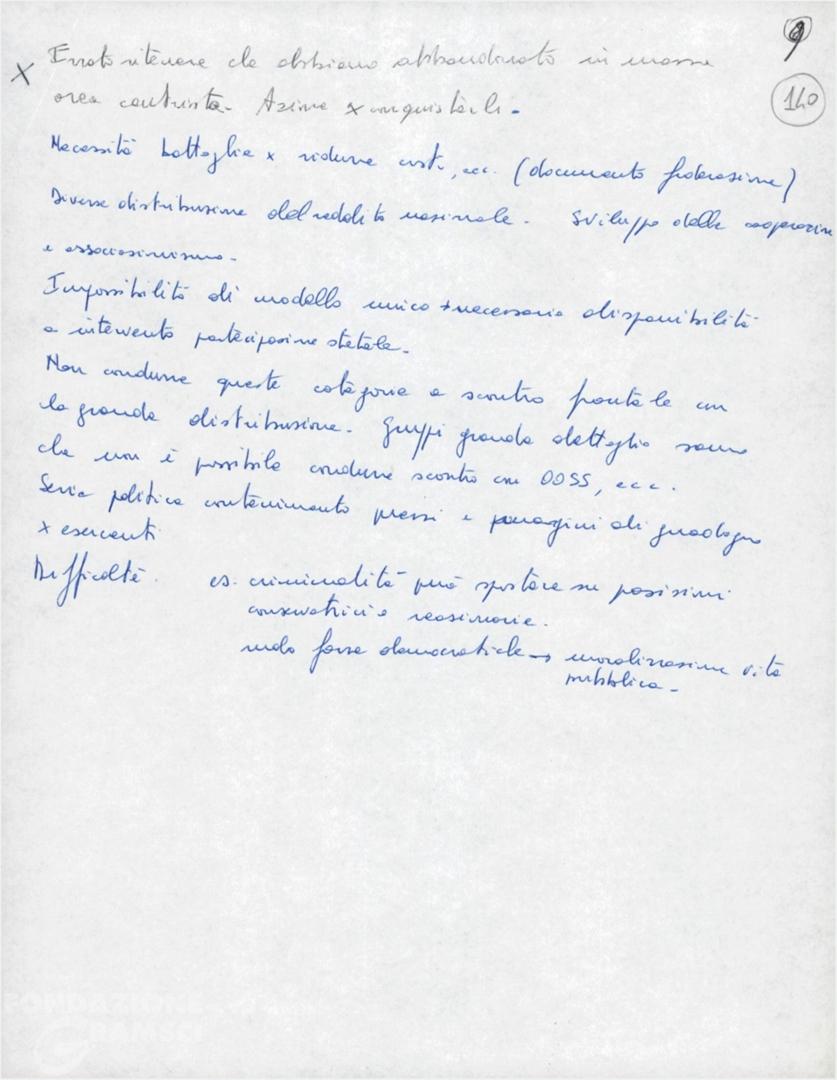 9
140
x Errato ritenere che abbiano abbandonato in massa
area centrista. Azione x conquistarli.
Necessità battaglia x ridurre costi, ecc. (documento federazione)
Diversa distribuzione del reddito nazionale. Sviluppo della cooperazione
e associazionismo.
Impossibilità di modello unico + necessaria disponibilità
a intervento partecipazione statale.
Non condurre queste categorie a scontro frontale con
la grande distribuzione. Gruppi grande dettaglio sanno
che non è possibile condurre scontro con OOSS, ecc.
Seria politica contenimento prezzi e margini di guadagno
x esercenti
Difficoltà. es. criminalità può spostare su posizioni
conservatrici e reazionarie.
ruolo forze democratiche → moralizzazione vita
pubblica.
FONDAZIONE
GRAMSCI